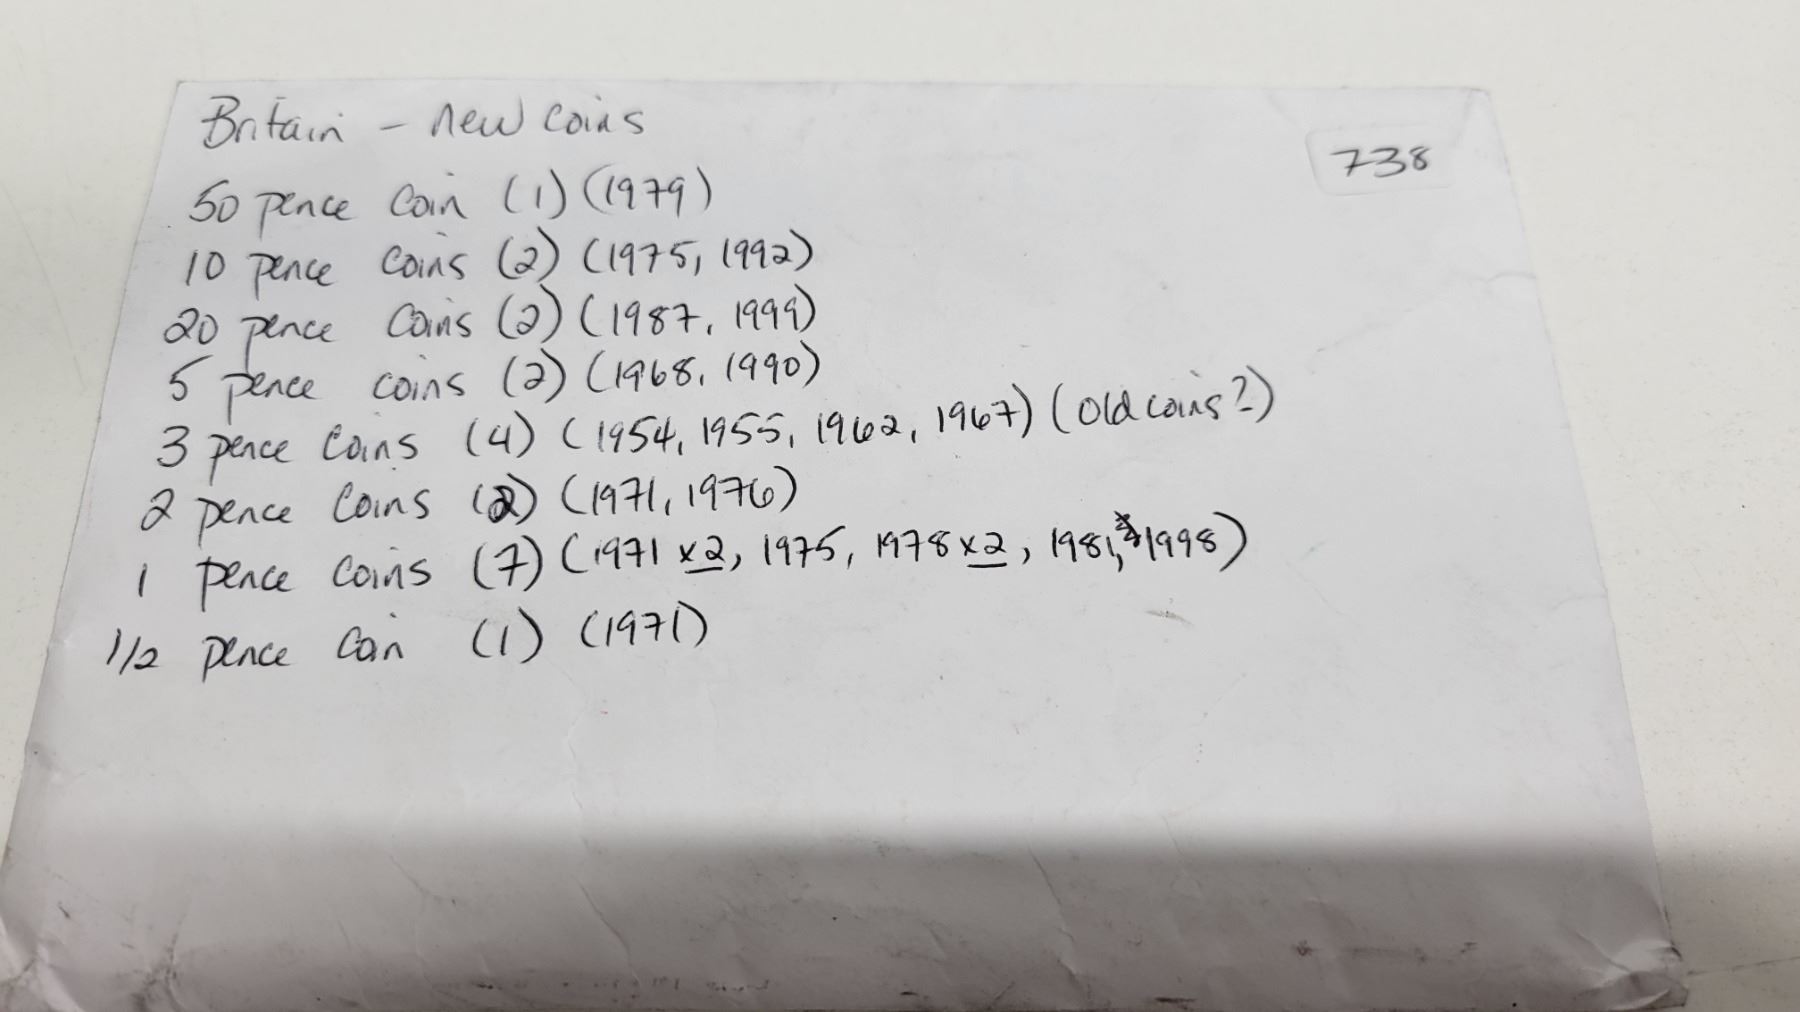 Britain - new coins
738
50 pence coin (1) (1979)
10 pence coins (2) (1975, 1992)
20 pence coins (2) (1987, 1999)
5 pence coins (2) (1968, 1990)
3 pence coins (4) (1954, 1955, 1962, 1967) (old coins?)
2 pence coins (2) (1971, 1976)
1 pence coins (7) (1971 x2, 1975, 1978 x2, 1981, 1998)
1/2 pence coin (1) (1971)